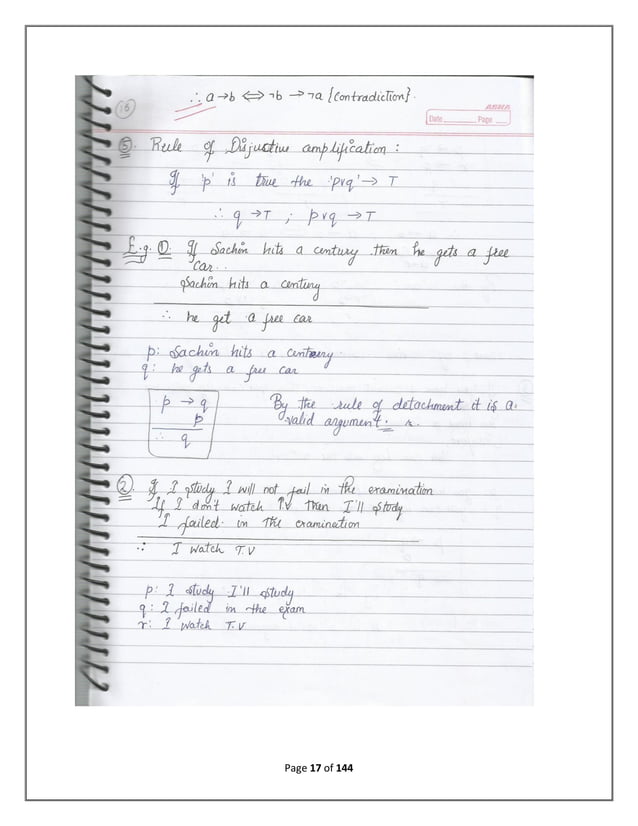 ∴ a → b ⇔ ¬b → ¬a {Contradiction}.
16
Date Page
5. Rule of Disjuctive amplification :
If 'p' is true the 'p∨q' → T
∴ q → T ; p∨q → T
E.g. 1. If Sachin hits a century then he gets a free
car..
Sachin hits a century
∴ he get a free car
p: Sachin hits a century.
q: he gets a free car
p → q
p
∴ q
By the rule of detachment it is a
valid argument.
2. If I study I will not fail in the examination
If I don't watch T.V then I'll study
I failed in the examination
∴ I watch T.V
p: I study I'll study
q: I failed in the exam
r: I watch T.V
Page 17 of 144